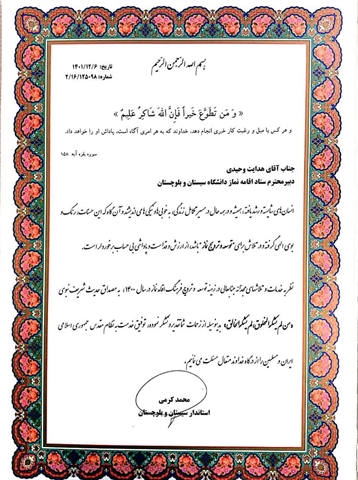 بسم الله الرحمن الرحیم
تاریخ: ۱۴۰۱/۱۲/۶
شماره: ۲/۱۶/۱۲۵۰۹۸
« وَ مَن تَطَوَّعَ خَیراً فَإِنَّ اللّهَ شَاکِرٌ عَلِیمٌ »
و هر کس با میل و رغبت کار خیری انجام دهد، خداوند که به هر امری آگاه است، پاداش او را خواهد داد.
سوره بقره آیه ۱۵۸
جناب آقای هدایت وحیدی
دبیرمحترم ستاد اقامه نماز دانشگاه سیستان و بلوچستان
انسان‌های شایسته و رشد یافته، همیشه و در همه حال در مسیر تکامل زندگی، به خوبی‌ها و نیکی‌ها می‌اندیشند و آن گاه که این حسنات، رنگ و
بوی الهی گرفته و در تلاش برای توسعه و ترویج نماز باشد، از ارزش و قداست و پاداشی بی حساب برخوردار است.
نظر به خدمات و تلاشهای مجدانه جنابعالی در زمینه توسعه و ترویج فرهنگ اقامه نماز در سال ۱۴۰۰، به مصداق حدیث شریف نبوی
«من لم یشکر المخلوق، لم یشکر الخالق» بدینوسیله از زحمات شما تقدیر و تشکر نموده، توفیق خدمت به نظام مقدس جمهوری اسلامی
ایران و مسلمین را از درگاه خداوند متعال مسئلت می نمایم.
محمد کرمی
استاندار سیستان و بلوچستان